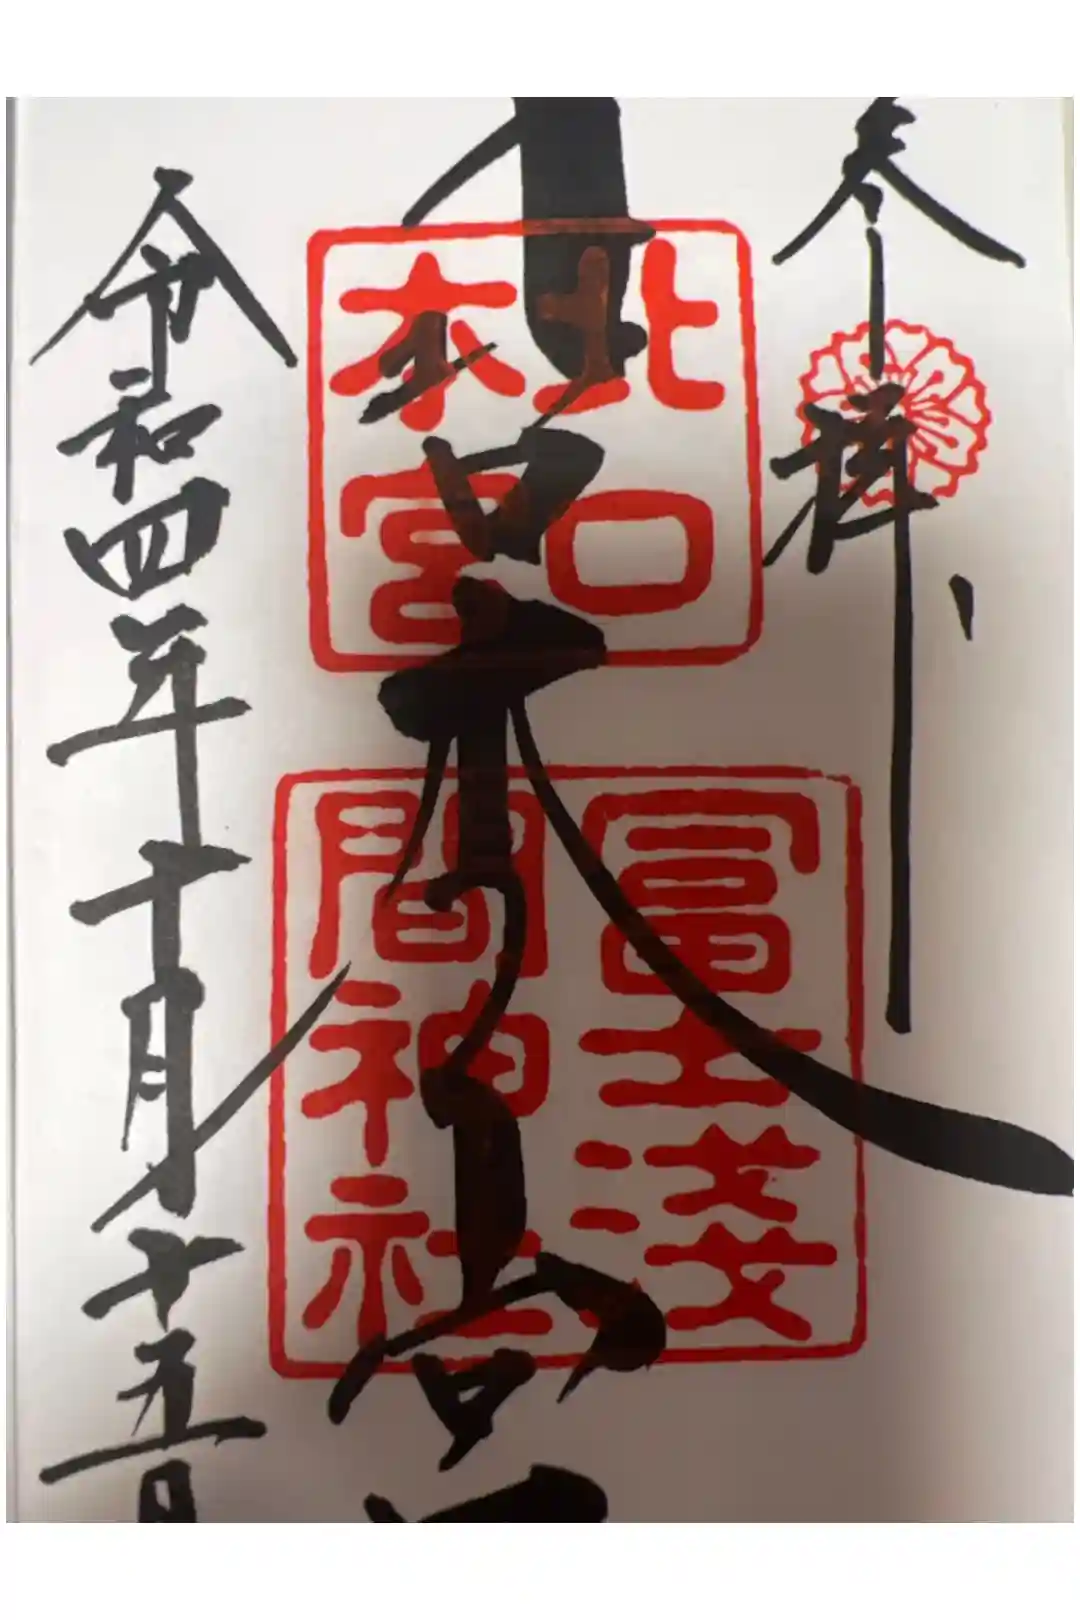 奉拝
北口本宮
冨士淺間神社
北口本宮
令和四年十月十五日